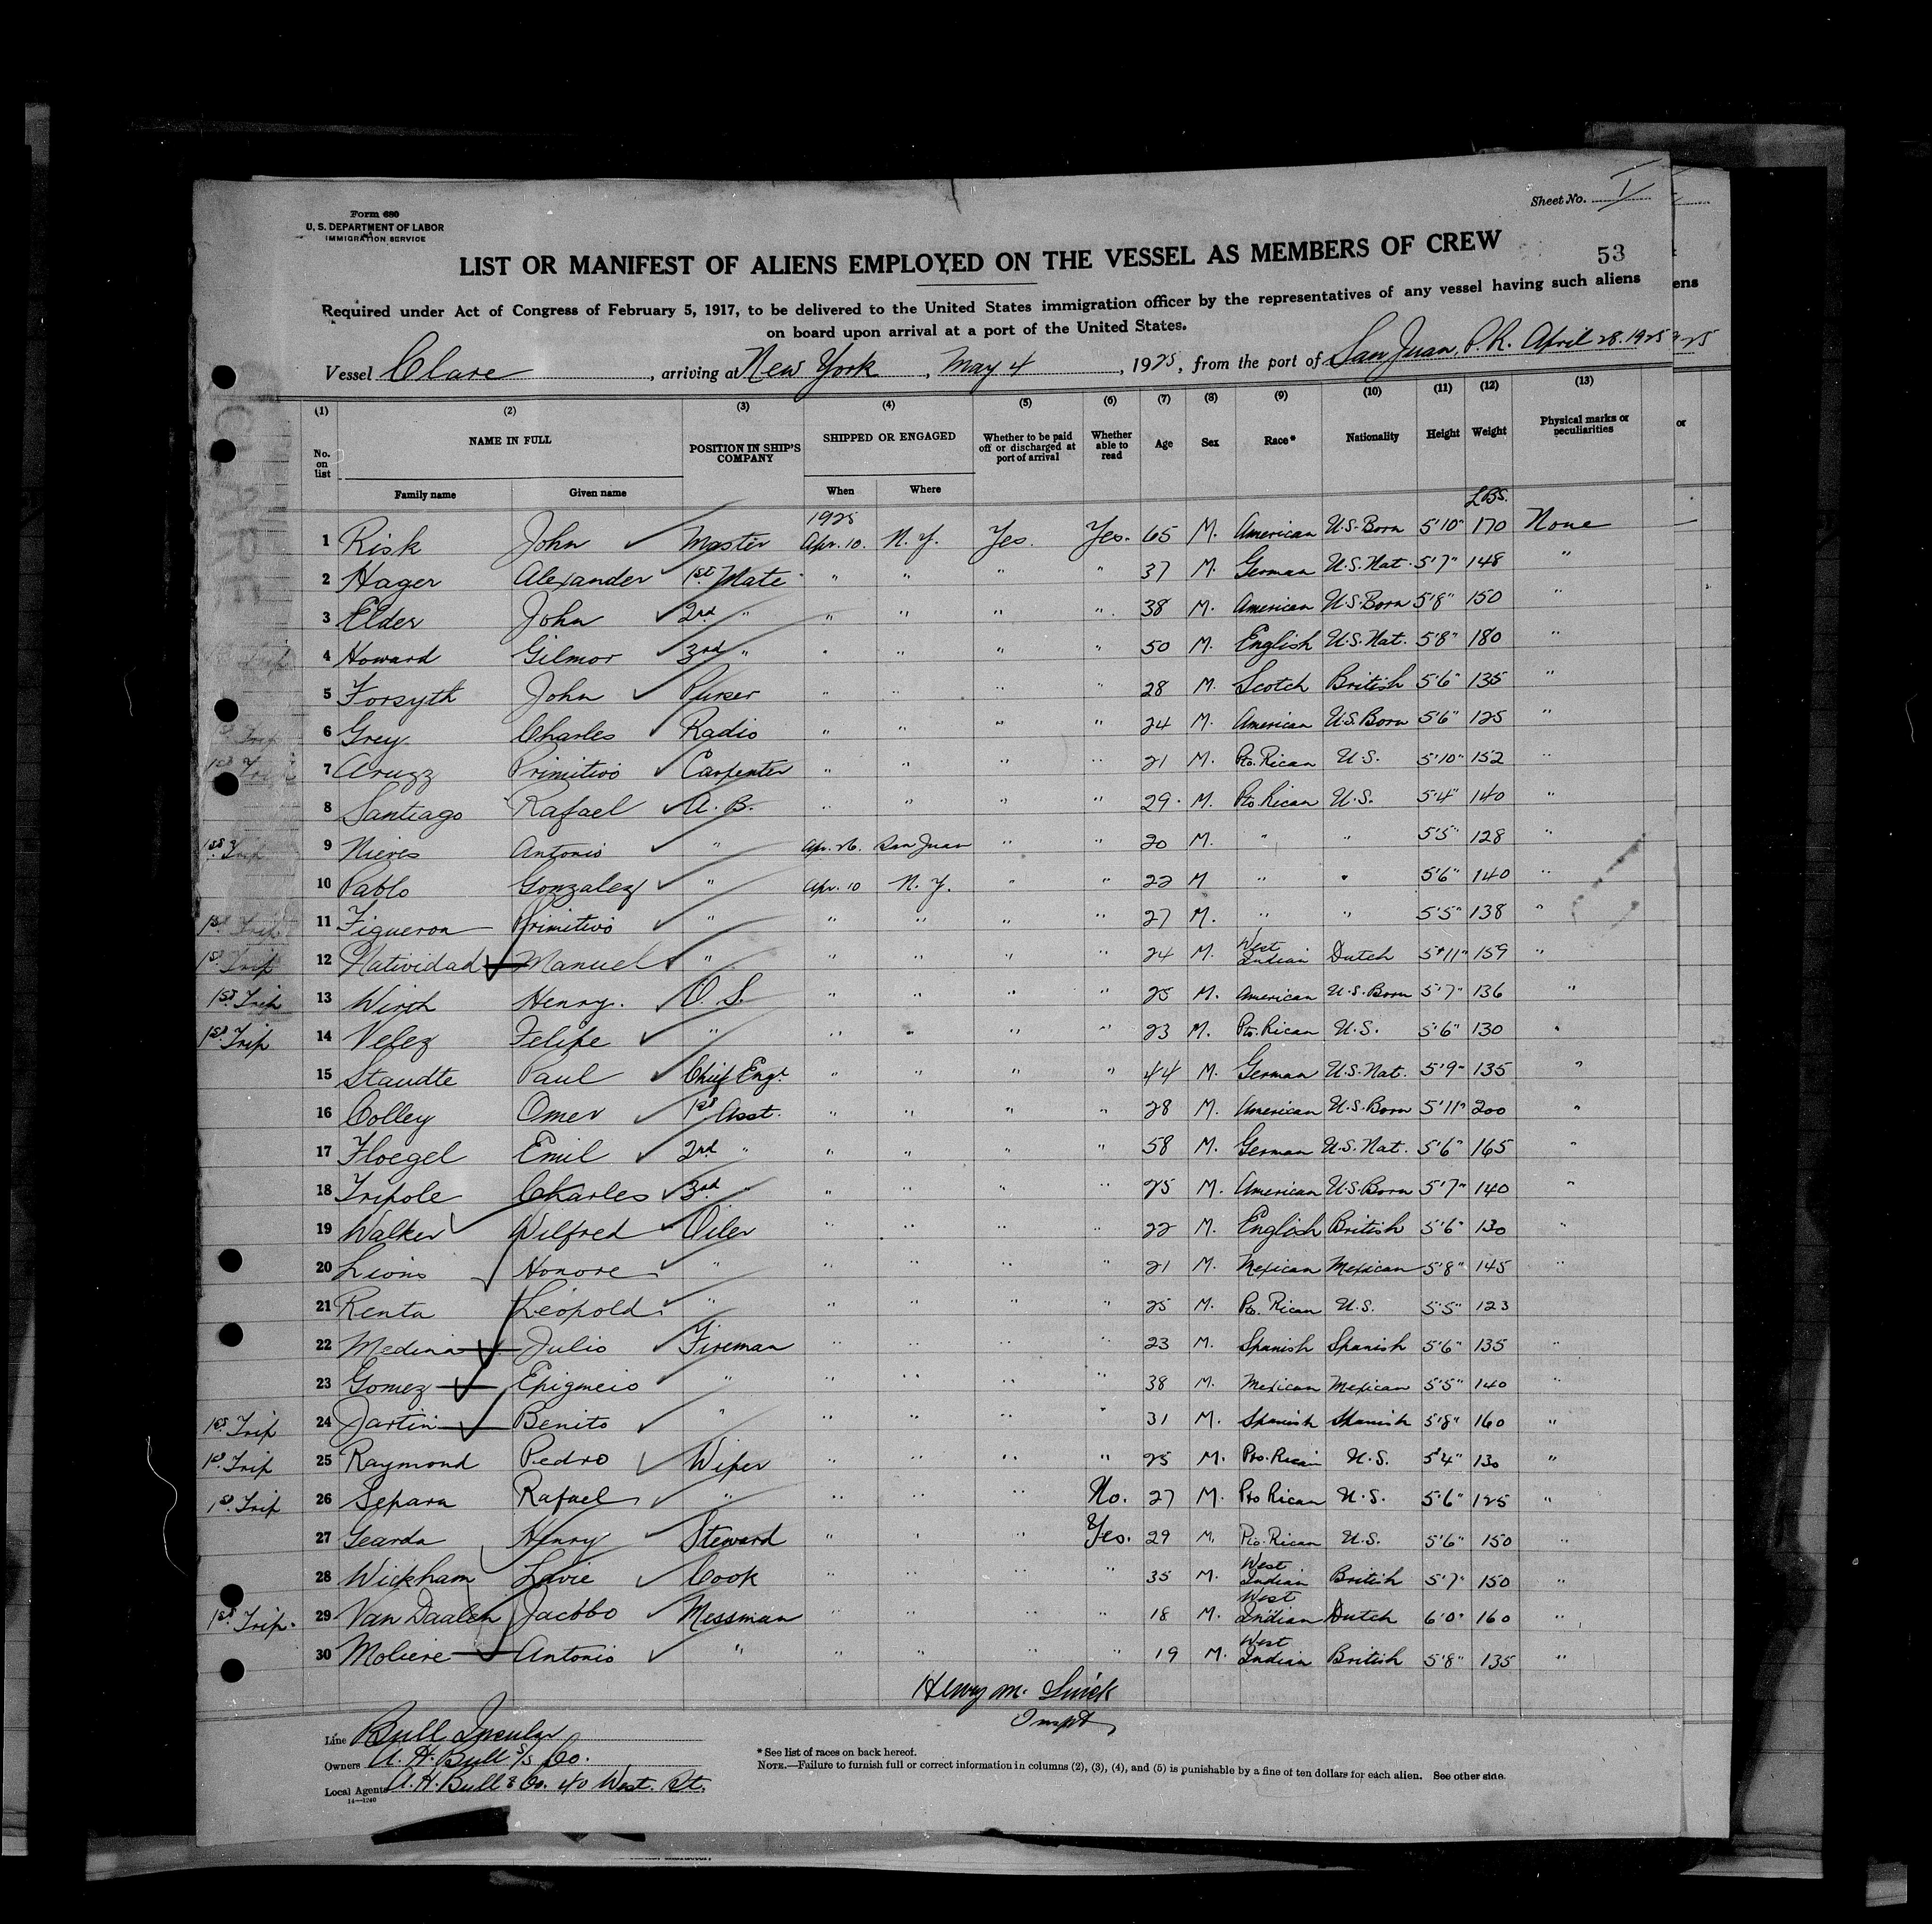 Sheet No. 1
Form 680
U. S. DEPARTMENT OF LABOR
IMMIGRATION SERVICE
LIST OR MANIFEST OF ALIENS EMPLOYED ON THE VESSEL AS MEMBERS OF CREW
53
Required under Act of Congress of February 5, 1917, to be delivered to the United States immigration officer by the representatives of any vessel having such aliens
on board upon arrival at a port of the United States.
Vessel Clare, arriving at New York, May 4, 1925, from the port of San Juan, P.R. April 28. 1925
(1) (2) (3) (4) (5) (6) (7) (8) (9) (10) (11) (12) (13)
No. on list NAME IN FULL POSITION IN SHIP'S COMPANY SHIPPED OR ENGAGED Whether to be paid off or discharged at port of arrival Whether able to read Age Sex Race* Nationality Height Weight Physical marks or peculiarities
Family name Given name When Where
1925 LBS.
1 Risk John Master Apr. 10. N.Y. Yes. Yes. 65 M. American U.S. Born 5'10" 170 None
2 Hager Alexander 1st Mate " " " " 37 M. German U.S. Nat. 5'7" 148 "
3 Elder John 2nd " " " " " 38 M. American U.S. Born 5'8" 150 "
4 Howard Gilmor 3rd " " " " " 50 M. English U.S. Nat. 5'8" 180 "
5 Forsyth John Purser " " " " 28 M. Scotch British 5'6" 135 "
6 Grey Charles Radio " " " " 24 M. American U.S. Born 5'6" 125 "
1st Trip 7 Aruzz Primitivo Carpenter " " " " 21 M. Pto. Rican U.S. 5'10" 152 "
8 Santiago Rafael A. B. " " " " 29. M. Pto Rican U.S. 5'4" 140 "
1st Trip 9 Nieves Antonio " Apr. 26. San Juan " " 20 M. " " 5'5" 128 "
10 Pablo Gonzalez " Apr. 10 N.Y. " " 22 M " " 5'6" 140 "
1st Trip 11 Figueroa Primitivo " " " " " 27 M. " " 5'5" 138 "
1st Trip 12 Natividad Manuel " " " " " 24 M. West Indian Dutch 5'11" 159 "
1st Trip 13 Wirth Henry. O. S. " " " " 25 M. American U.S. Born 5'7" 136 "
1st Trip 14 Velez Felipe " " " " " 23 M. Pto. Rican U.S. 5'6" 130 "
15 Staudte Paul Chief Engr. " " " " 44 M. German U.S. Nat. 5'9" 135 "
16 Colley Omer 1st Asst. " " " " 28 M. American U.S. Born 5'11" 200 "
17 Floegel Emil 2nd " " " " " 58 M. German U.S. Nat. 5'6" 165 "
18 Tripole Charles 3rd " " " " " 25 M. American U.S. Born 5'7" 140 "
19 Walker Wilfred Oiler " " " " 22 M. English British 5'6" 130 "
20 Lions Honore " " " " " 21 M. Mexican Mexican 5'8" 145 "
21 Renta Leopold " " " " " 25 M. Pto. Rican U.S. 5'5" 123
22 Medina Julio Fireman " " " " 23 M. Spanish Spanish 5'6" 135 "
23 Gomez Epigmeio " " " " " 38 M. Mexican Mexican 5'5" 140 "
1st Trip 24 Jartin Benito " " " " " 31 M. Spanish Spanish 5'8" 160 "
1st Trip 25 Raymond Pedro Wiper " " " " 25 M. Pto. Rican U.S. 5'4" 130 "
1st Trip 26 Separa Rafael " " " " No. 27 M. Pto Rican U.S. 5'6" 125 "
27 Gearda Henry Steward " " " Yes. 29 M. Pto. Rican U.S. 5'6" 150 "
28 Wickham Lovie Cook " " " " 35 M. West Indian British 5'7" 150 "
1st Trip. 29 Van Daalen Jacobo Messman " " " " 18 M. West Indian Dutch 6'0" 160 "
30 Moliere Antonio " " " " " 19 M. West Indian British 5'8" 135 "
Henry M.
Inspt
Line Bull Insular
Owners A. H. Bull S/S Co.
Local Agents A. H. Bull & Co. 40 West. St.
14—1240
* See list of races on back hereof.
NOTE.—Failure to furnish full or correct information in columns (2), (3), (4), and (5) is punishable by a fine of ten dollars for each alien. See other side.
CLARE